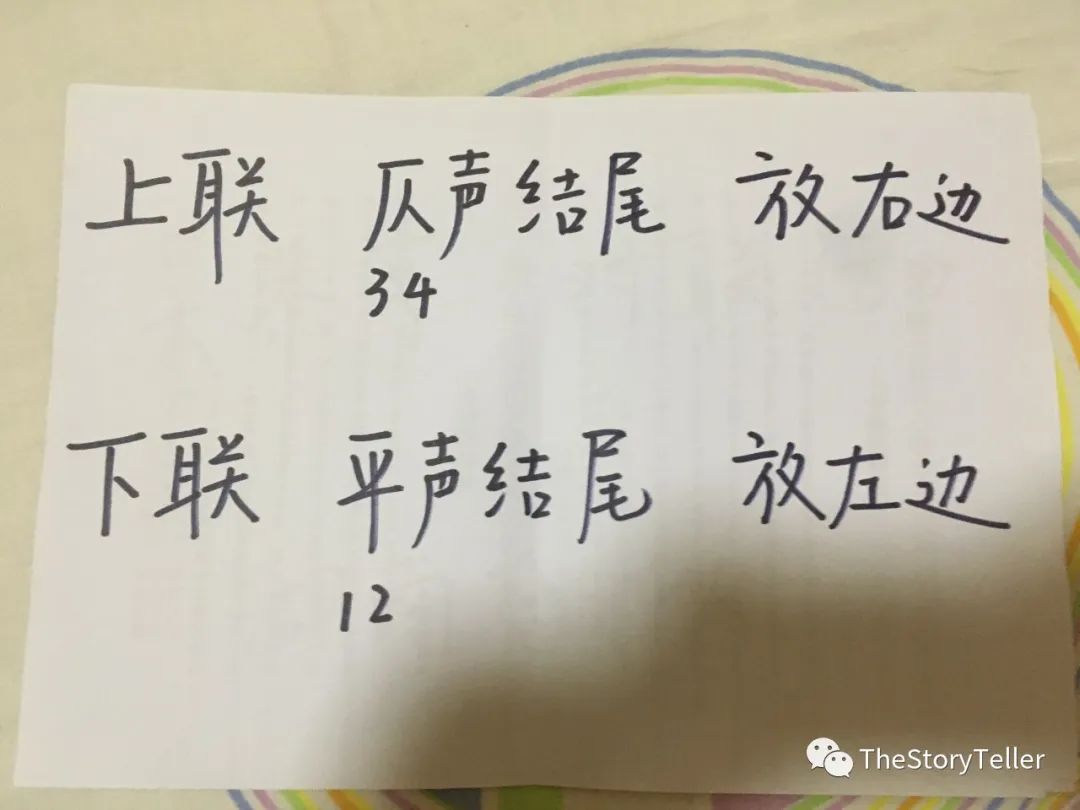 上联 仄声结尾 放右边
34
下联 平声结尾 放左边
12
TheStoryTeller